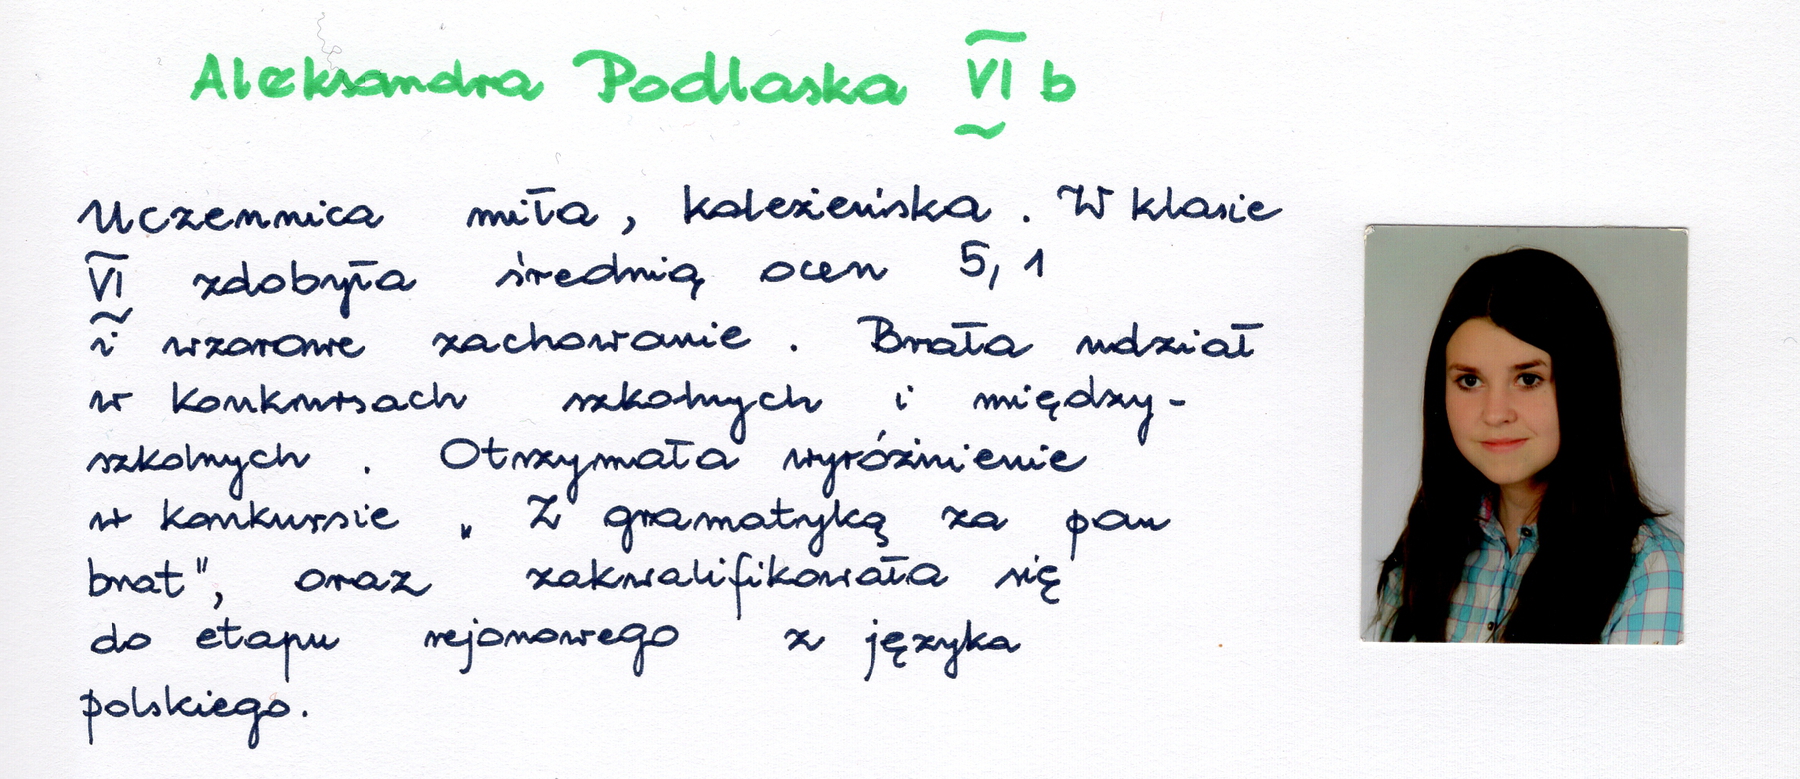 Aleksandra Podlaska VI b
Uczennica miła, koleżeńska. W klasie
VI zdobyła średnią ocen 5,1
i wzorowe zachowanie. Brała udział
w konkursach szkolnych i między-
szkolnych. Otrzymała wyróżnienie
w konkursie „Z gramatyką za pan
brat", oraz zakwalifikowała się
do etapu rejonowego z języka
polskiego.